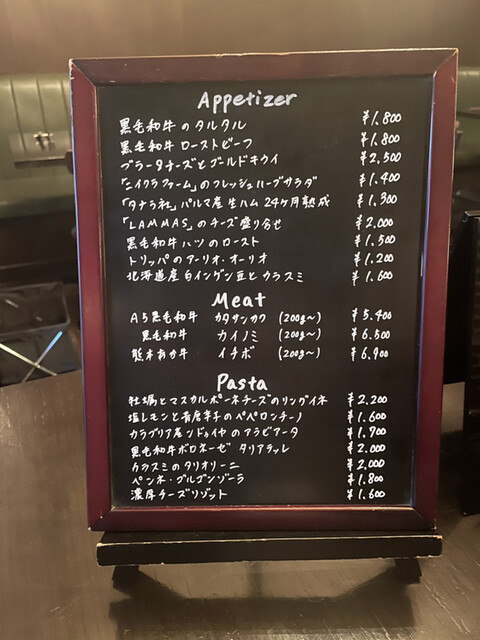 Appetizer
黒毛和牛のタルタル ¥1.800
黒毛和牛 ローストビーフ ¥1.800
ブラータチーズとゴールドキウイ ¥2,500
「ニイクラファーム」のフレッシュハーブサラダ ¥1.400
「タナラ社」パルマ産生ハム 24ヶ月熟成 ¥1.300
「LAMMAS」のチーズ盛り合せ ¥2.000
黒毛和牛ハツのロースト ¥1.500
トリッパのアーリオ・オーリオ ¥1.200
北海道産白インゲン豆とカラスミ ¥1.600
Meat
A5黒毛和牛 カタサンカク (200g〜) ¥5.400
黒毛和牛 カイノミ (200g〜) ¥6.500
熊本あか牛 イチボ (200g〜) ¥6.900
Pasta
牡蠣とマスカルポーネチーズのリングイネ ¥2.200
塩レモンと青唐辛子のペペロンチーノ ¥1.600
カラブリア産ンドゥイヤのアラビアータ ¥1.900
黒毛和牛ボロネーゼ タリアテッレ ¥2.000
カラスミのタリオリーニ ¥2.000
ペンネ・ゴルゴンゾーラ ¥1.800
濃厚チーズリゾット ¥1.600